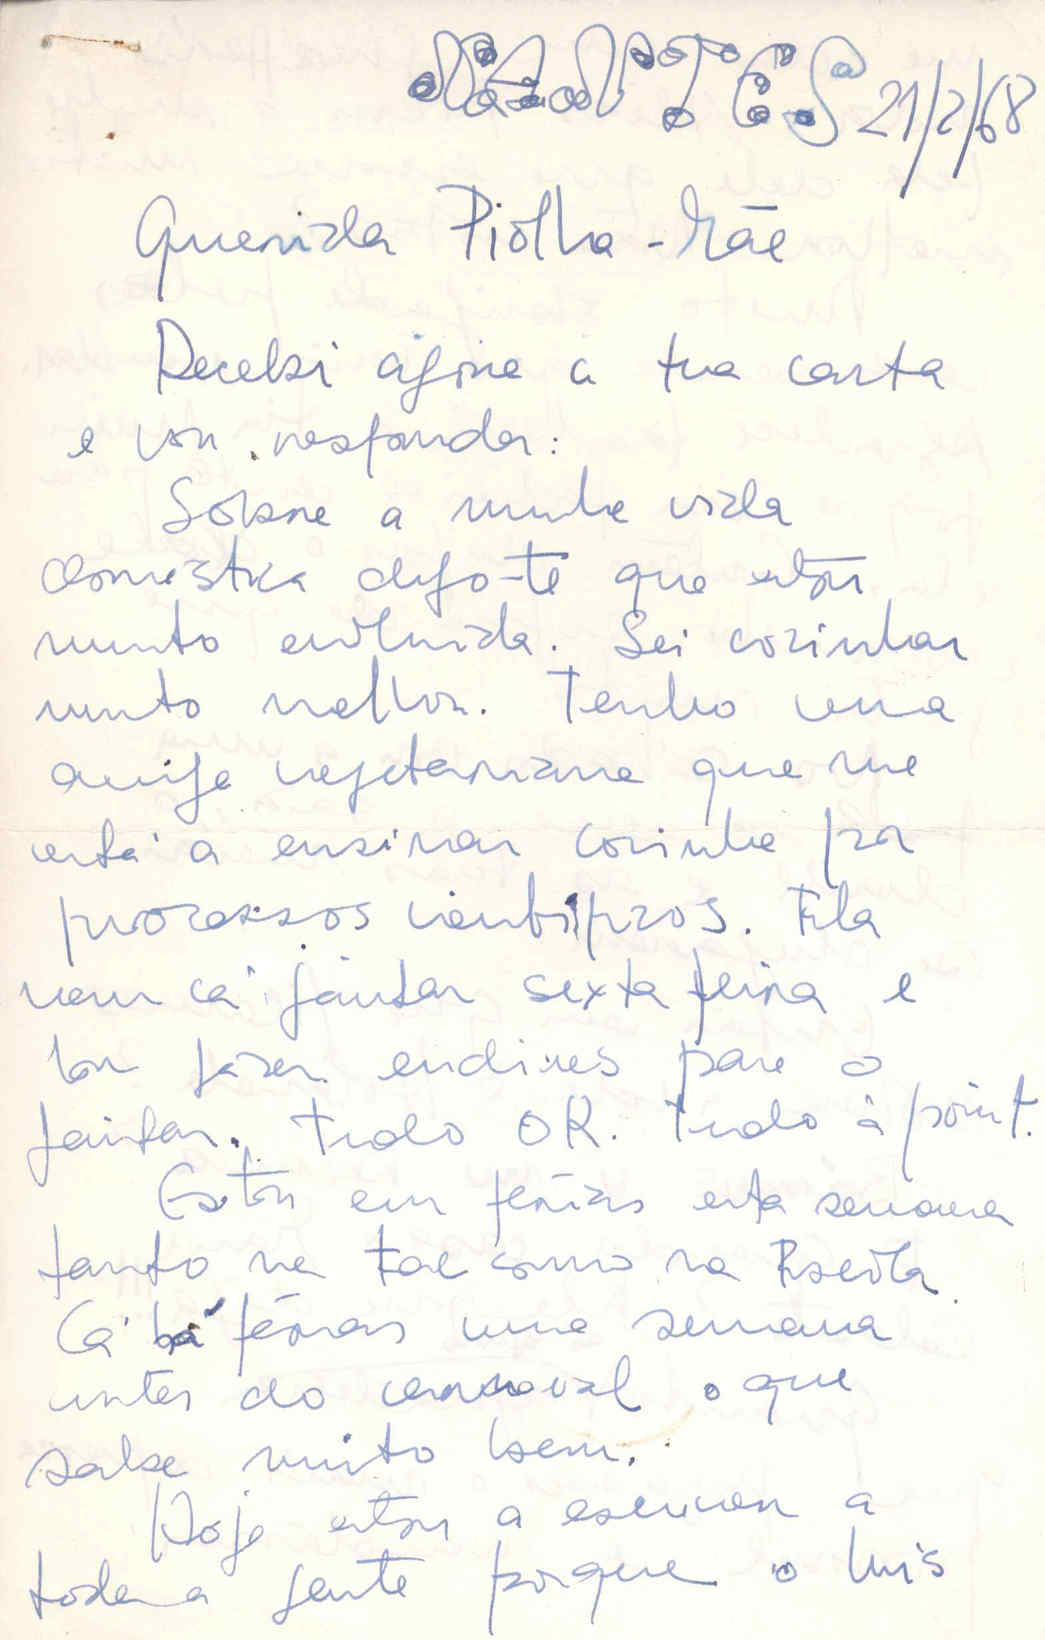 NANTES 21/2/68
Querida Piolha-Mãe
Recebi agora a tua carta
e vou responder:
Sobre a minha vida
doméstica digo-te que estou
muito evoluída. Sei cozinhar
muito melhor. Tenho uma
amiga vegetariana que me
está a ensinar cozinha por
processos científicos. Ela
vem cá jantar sexta feira e
vou fazer endives para o
jantar. Tudo OK. Tudo à point.
Estou em férias esta semana
tanto na Fac como na Escola.
Cá há férias uma semana
antes do carnaval o que
sabe muito bem.
Hoje estou a escrever a
toda a gente porque o Luís